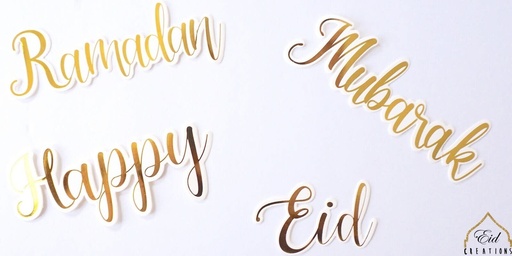 Ramadan
Mubarak
Happy
Eid
Eid
CREATIONS